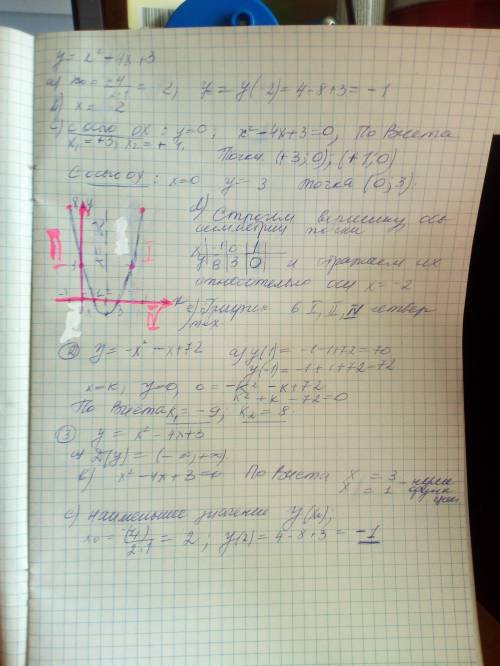 y = x² - 4x + 3
a) x₀ = -4/2·1 = 2, y = y( 2) = 4 - 8 + 3 = -1
b) x = 2
c) С осью OX: y = 0; x² - 4x + 3 = 0, По Виета
x₁ = +3; x₂ = + 1.
Точки (+3; 0); (+1; 0)
С осью OY: x = 0 y = 3 точка (0; 3).
8 y
I
II
3
-1 1 2 3 x
IV
д) Строим вершину, ось
симметрии точки
x -1 0 1
y 8 3 0 и отражаем их
относительно оси x = -2
График в I, II, IV четвер
тях.
② y = -x² - x + 72 a) y(1) = -1 - 1 + 72 = 70
y(-1) = -1 + 1 + 72 = 72
x = к; y = 0, 0 = -к² - к + 72
к² + к - 72 = 0
По Виета к₁ = -9; к₂ = 8
③ y = x² - 4x + 3
a) D(y) = (-∞; +∞)
b) x² - 4x + 3 = 0 По Виета x₁ = 3
x = 1 - нули
функ
ции
c) наименьшее значение y(x₀);
x₀ = -(-4)/2·1 = 2; y(2) = 4 - 8 + 3 = -1